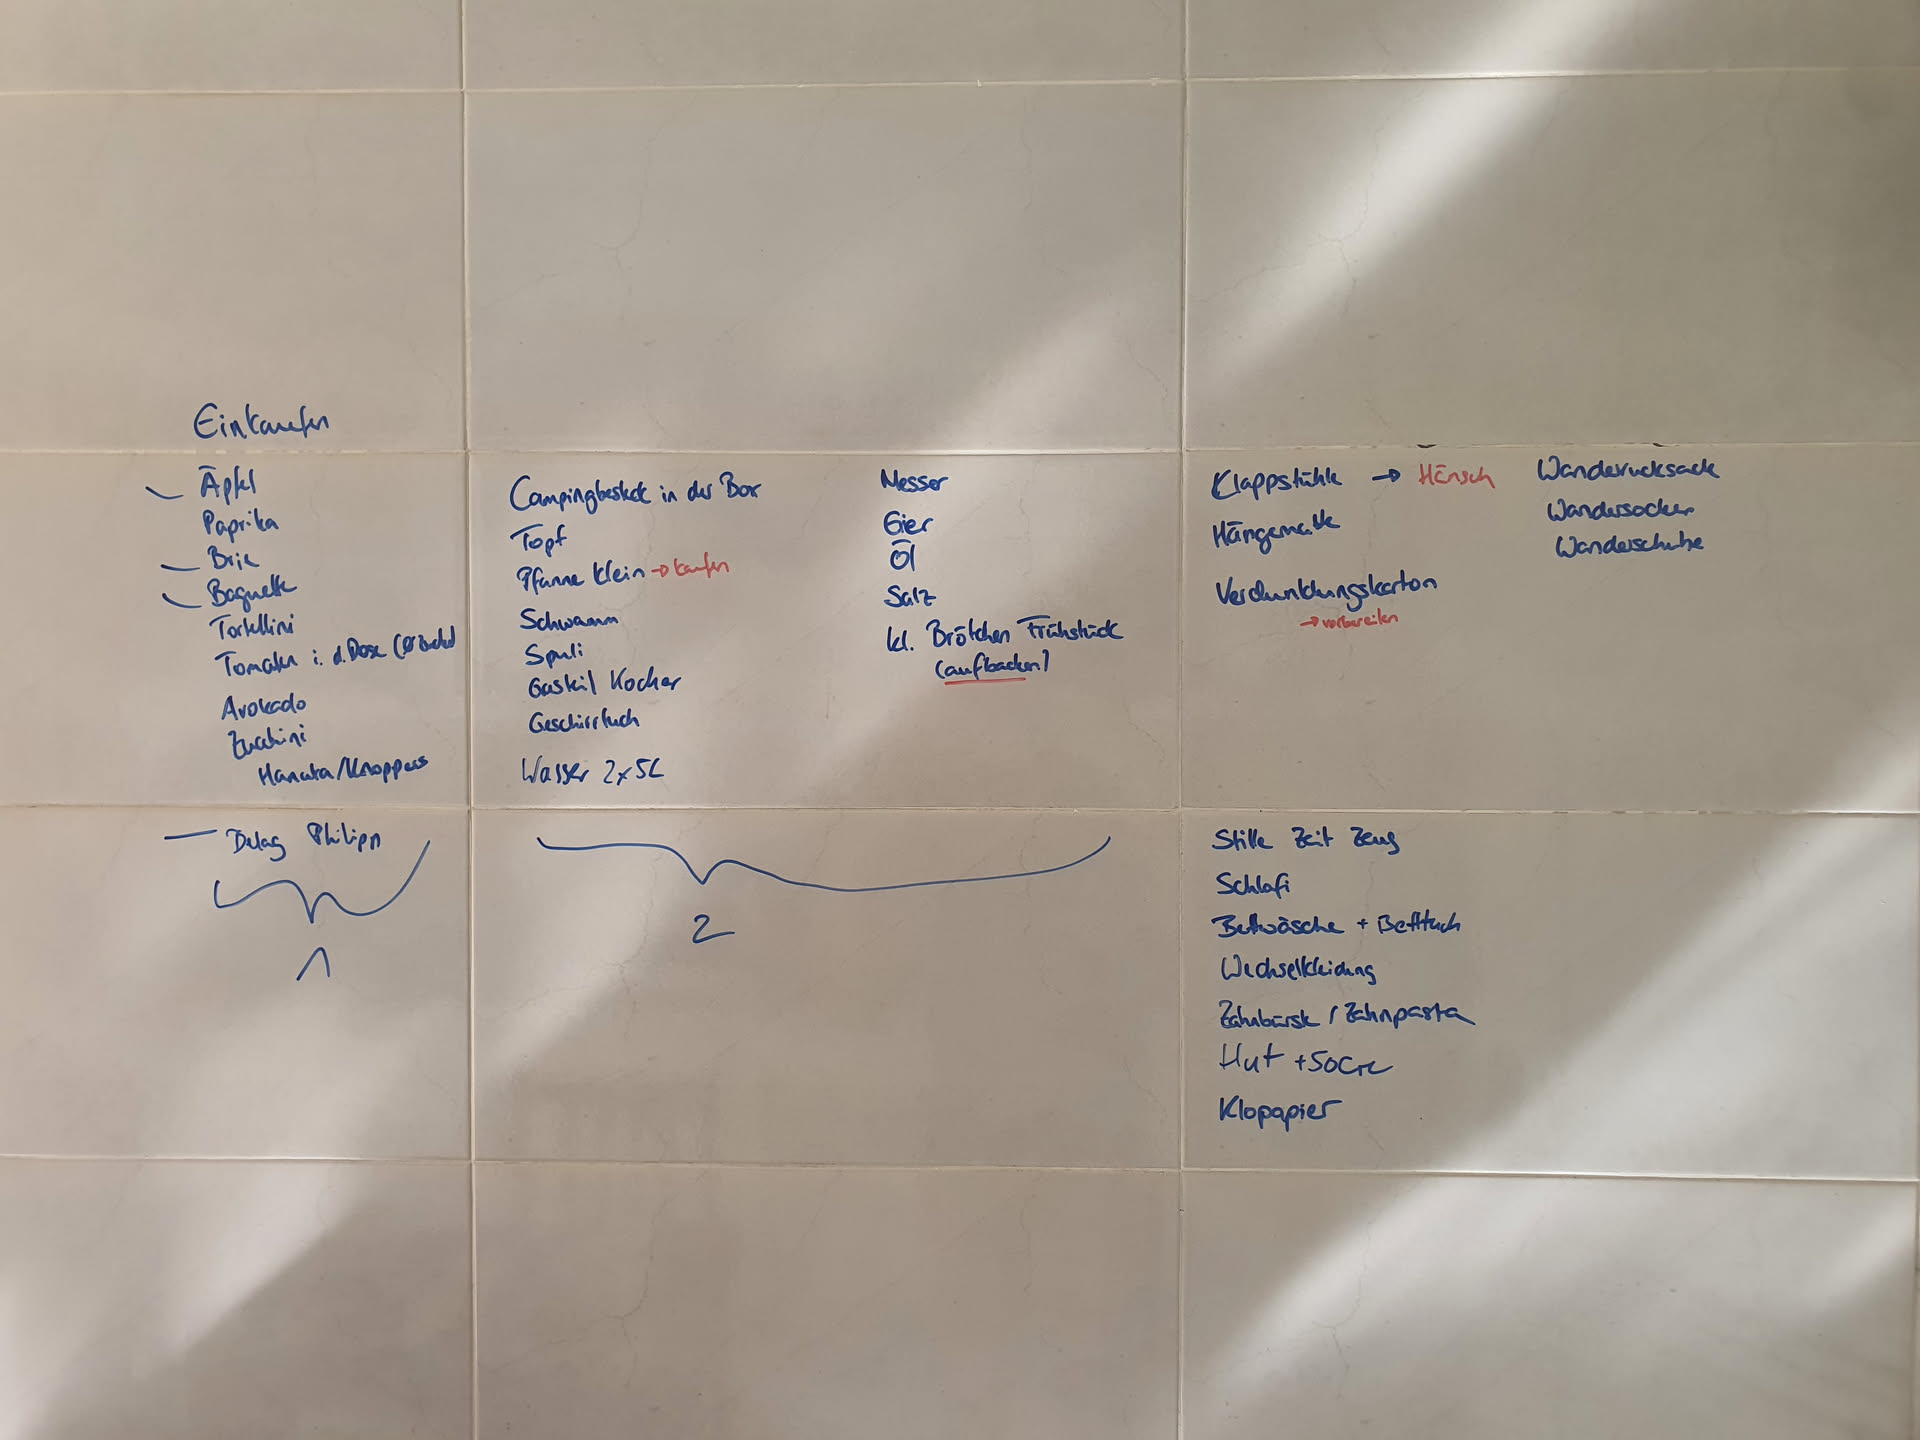 Einkaufen
Äpfel
Paprika
Brie
Baguette
Tortellini
Tomaten i. d. Dose
Avokado
Zucchini
Hanuta/Knoppers
Belag Philipp
1
Campingbesteck in der Box
Topf
Pfanne klein → kaufen
Schwamm
Spüli
Gaskocher
Geschirrtuch
Wasser 2x5L
Messer
Eier
Öl
Salz
kl. Brötchen Frühstück
(aufbacken)
2
Klappstühle → Hänsch
Hängematte
Verdunklungskarton
→ vorbereiten
Wanderucksack
Wandersocken
Wanderschuhe
Stille Zeit Zeug
Schlafi
Bettwäsche + Betttuch
Wechselkleidung
Zahnbürste / Zahnpasta
Hut + Socke
Klopapier